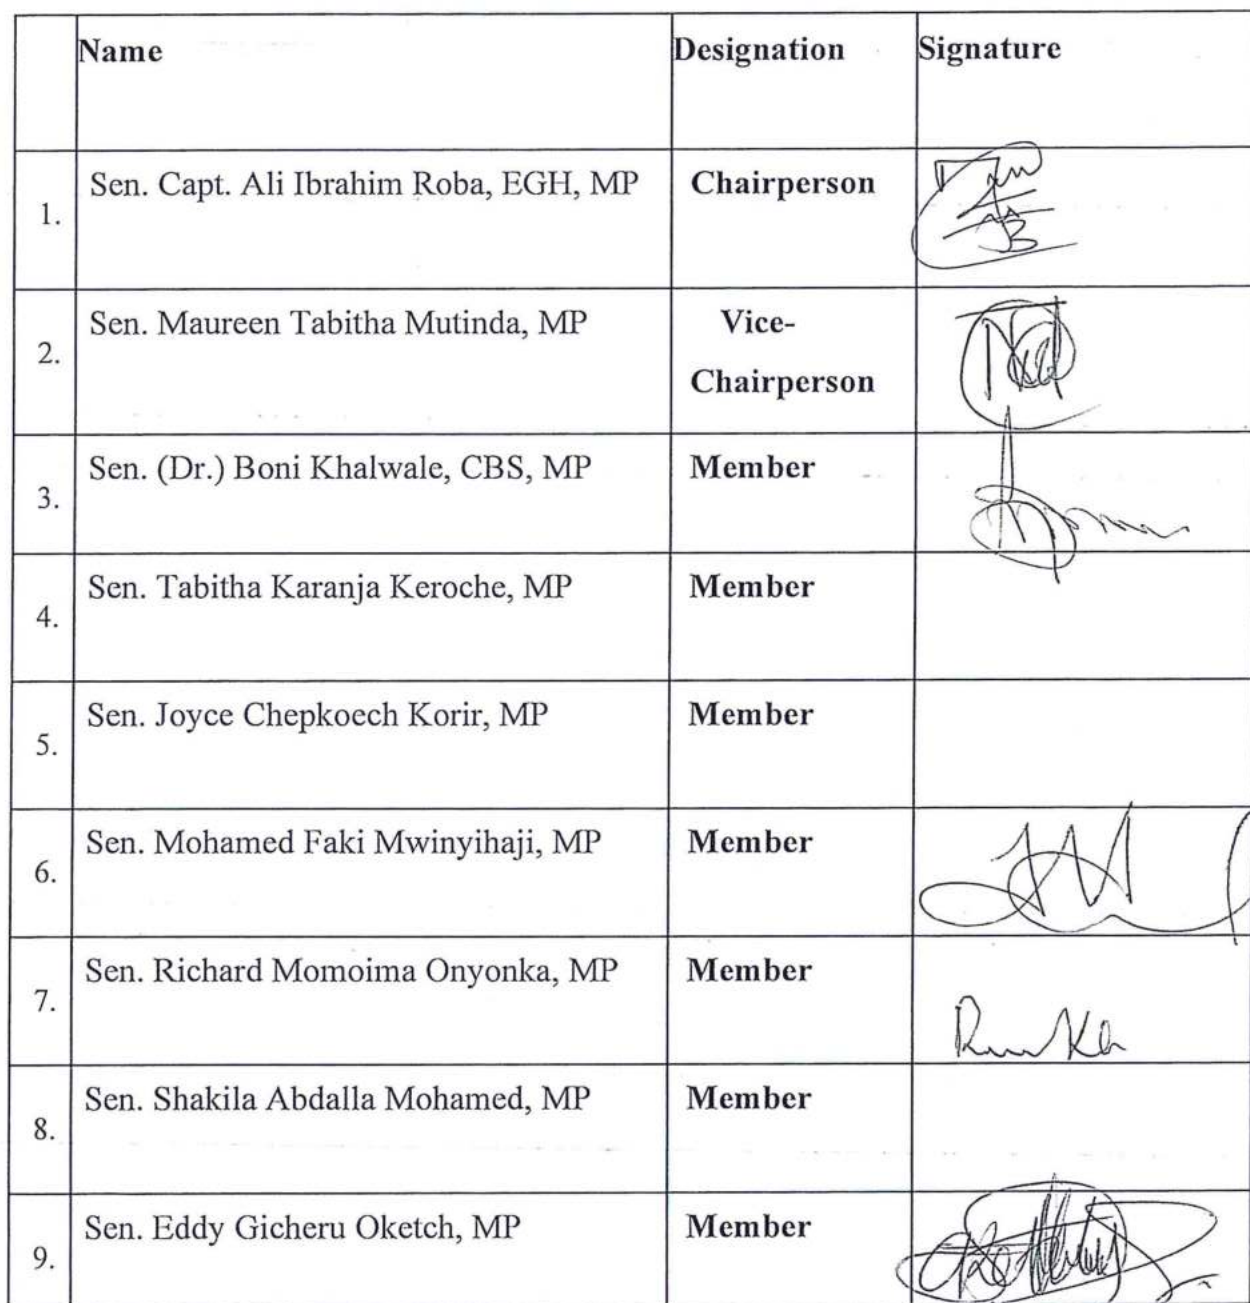 Name Designation Signature
1. Sen. Capt. Ali Ibrahim Roba, EGH, MP Chairperson
2. Sen. Maureen Tabitha Mutinda, MP Vice-
Chairperson
3. Sen. (Dr.) Boni Khalwale, CBS, MP Member
4. Sen. Tabitha Karanja Keroche, MP Member
5. Sen. Joyce Chepkoech Korir, MP Member
6. Sen. Mohamed Faki Mwinyihaji, MP Member
7. Sen. Richard Momoima Onyonka, MP Member
8. Sen. Shakila Abdalla Mohamed, MP Member
9. Sen. Eddy Gicheru Oketch, MP Member